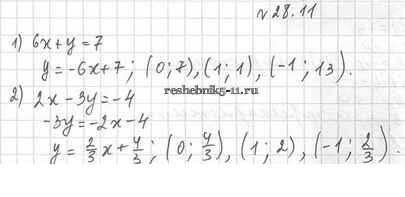 №28.11
1) 6x+y=7
y=-6x+7; (0;7), (1;1), (-1;13).
reshebnik5-11.ru
2) 2x-3y=-4
-3y=-2x-4
y=2/3x+4/3; (0;4/3), (1;2), (-1;2/3).